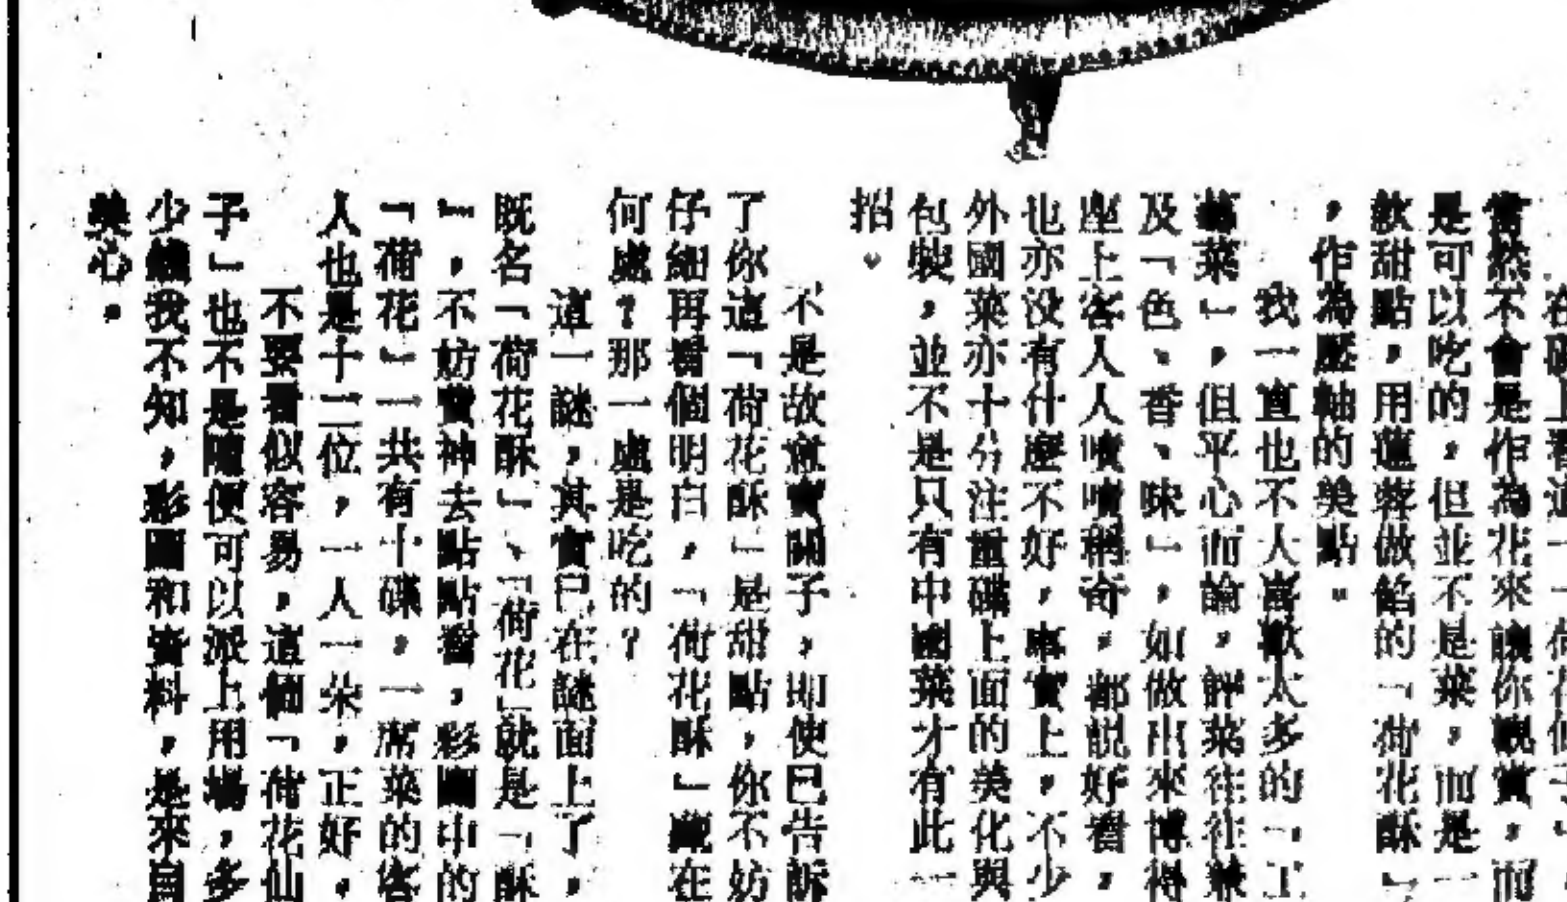 在碟上看這一
當然不會是作為花來讓你觀賞，而
是可以吃的，但並不是菜，而是一
款甜點，用蓮蓉做餡的「荷花酥」
，作為壓軸的美點。
我一直也不大喜歡太多的「工
藝菜」，但平心而論，評菜往往兼
及「色、香、味」，如做出來博得
座上客人人嘖嘖稱奇，都説好看，
也亦没有什麽不好，事實上，不少
外國菜亦十分注重碟上面的美化與
包裝，並不是只有中國菜才有此一
招。
不是故意賣關子，即使已告訴
了你這「荷花酥」是甜點，你不妨
仔細再看個明白，「荷花酥」藏在
何處？那一處是吃的？
這一謎，其實已在謎面上了，
既名「荷花酥」、「荷花」就是「酥
」，不妨費神去點點看，彩圖中的
「荷花」一共有十碟，一席菜的客
人也是十二位，一人一朵，正好，
不要看似容易，這個「荷花仙
子」也不是隨便可以派上用場，多
少錢我不知，彩圖和資料，是來自
美心。